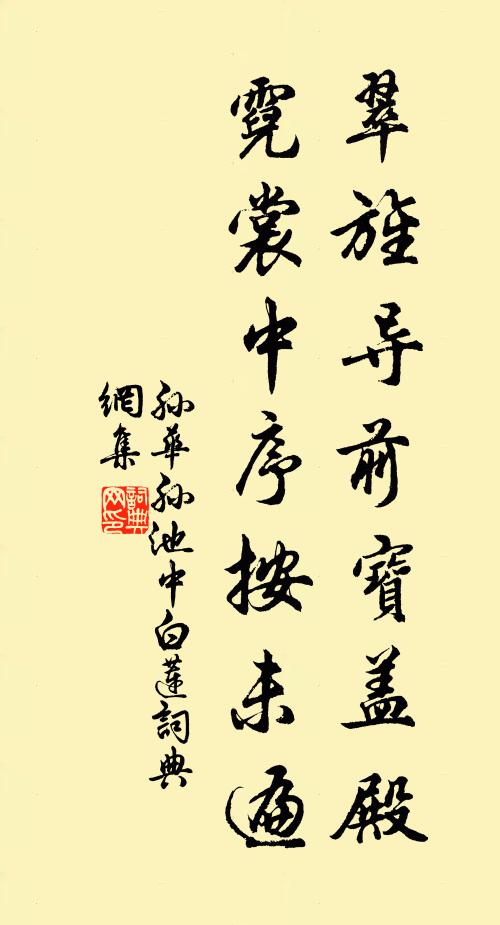 翠旌导前寶盖殿
霓裳中序按未遍
孙華孙池中白蓮詞典
網集
詞典
网印